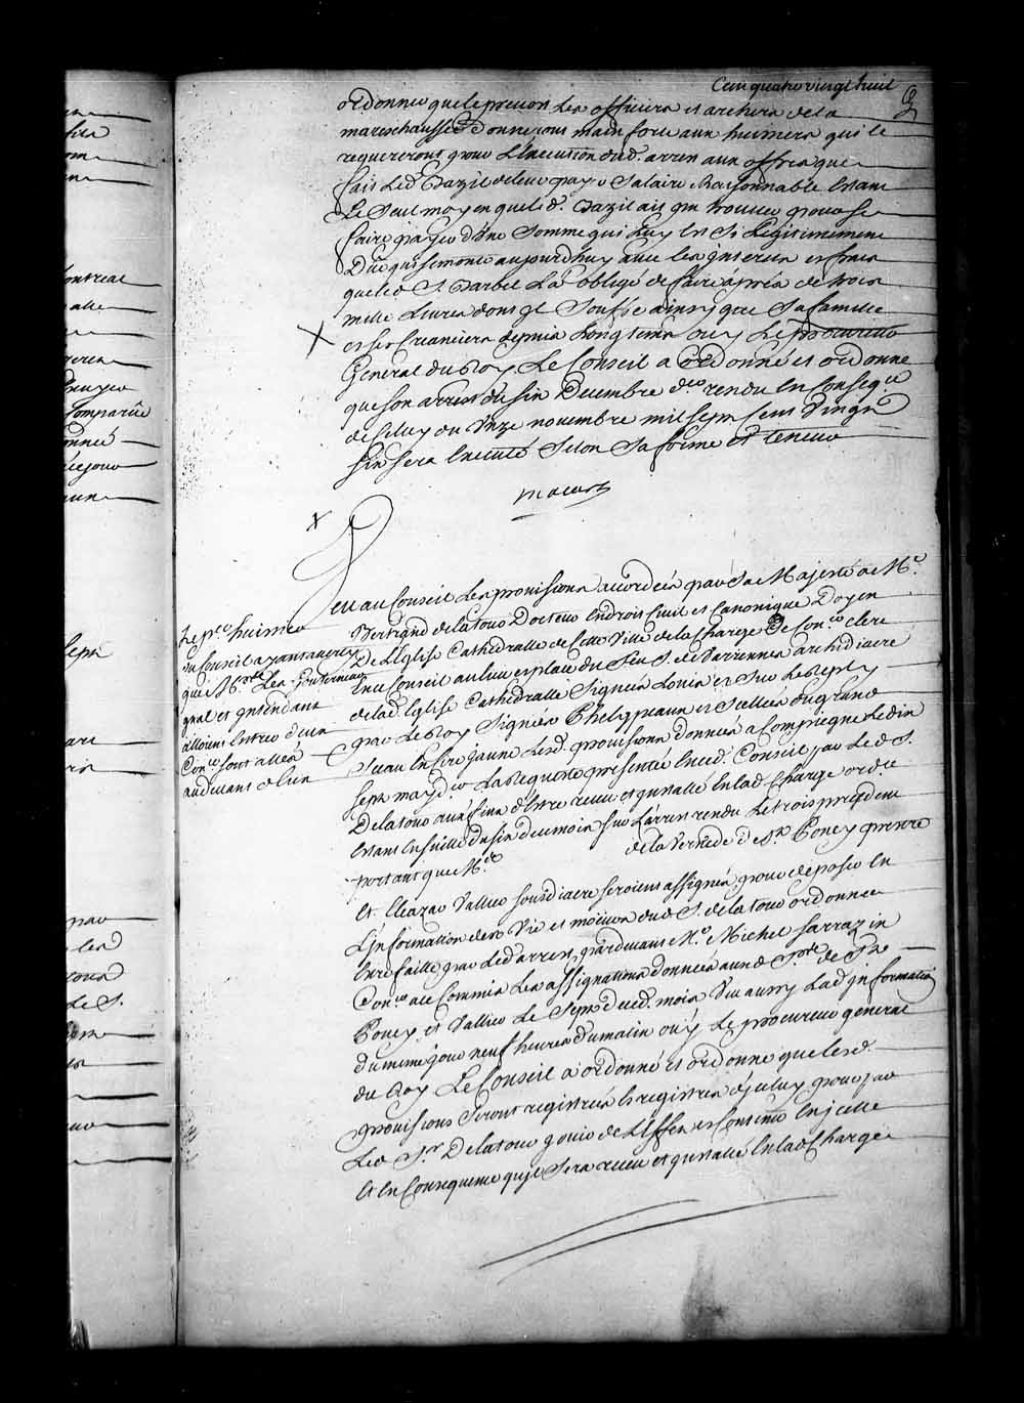 Cent quatre vingt huit
ordonner que le prevost les officiers et archers de la
mareschaussée donneront main forte aux huissiers qui le
requereront pour L'Execution dud. arrest aux offres que
fait Led. Dazil de leur payer Salaire Raisonnable Estant
Le Seul moyen que led. Dazil ait pu trouver pour se
faire payer d'Une Somme qui Luy est Si Legitimement
Düe qui se monte aujourdhuy avec les interests et frais
que led S. Barbel La obligé de faire á prés de trois
mille Livres dont il Souffre ainsy que Sa famille
et ses Creanciers depuis Longtems ouy Le procureur
General du Roy Le Conseil a Ordonné et ordonne
que son arrest du six Decembre der rendu En Conseqce
de Celuy du Unze novembre mil sept Cent Vingt
Six sera Executé Selon Sa forme et teneur
Veu au Conseil Les provisions accordées par Sa Majesté a Me.
Bertrand de latour Docteur En droit Civil et Canonique Doyen
De L'Eglise Cathedralle de Cette Ville de la Charge De Coner Clerc
En ce Conseil au lieu et place du feu S. de Varennes archidiacre
de lad. Eglise Cathedralle Signées Louis et sur le Reply
par Le Roy Signées Phelypeaux et Scellées du grand
Sceau En Cire jaune Lesd. provisions données a Compiegne Le dix
Sept may der La Requeste presentée En ced. Conseil par Led S.
De latour aux fins d'Estre receu et installé En lad Charge ordce
Estant En suitte du six de ce mois Sur L'arrest rendu Le trois precedent
portant que Me. de la Vernede De St. Poncy prestre
Et Eleazar Vallier sousdiacre seroient assignés pour deposer En
L'information des Vie et mœurs dud S. de latour ordonnée
Estre faitte par Led arrest, pardevant Me. Michel Sarrazin
Coner a ce Commis Les assignations données auxd Srs. de St.
Poncy et Vallier Le Sept dud. mois Veu aussy Lad information
du meme jour neuf heures du matin ouy Le procureur general
du Roy Le Conseil a ordonné et ordonne que lesd.
provisions Seront registrées Es registres d'jceluy pour par
Led Sr. De latour jouir de L'effet et Contenu En jcelle
Et En Consequence qu'jl Sera receu et installé En lad Charge
Le per huissier
du Conseil ayant averty
que Mrs. Les Gouverneur
gnal et Intendant
alloient Entrer deux
Coners sont allés
audevant d'Eux